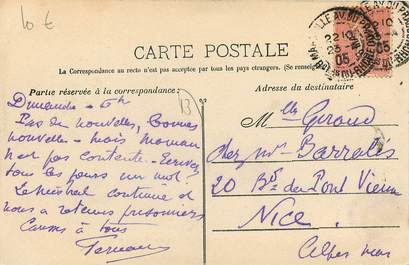 10 €
CARTE POSTALE
La Correspondance au recto n'est pas acceptée par tous les pays étrangers. (Se renseigner
Partie réservée à la correspondance:
Adresse du destinataire
13
Dimanche - 6h
Pas de nouvelles, bonnes
nouvelles - mais Maman
n'est pas contente - Ecrivez
tous les jours un mot.
Le Mistral continue et
nous a retenus prisonniers
à tous
Mlle Giraud
chez Mr Barralis
20 Bd du Pont Vieux
Nice
Alpes Mar
22 10
05